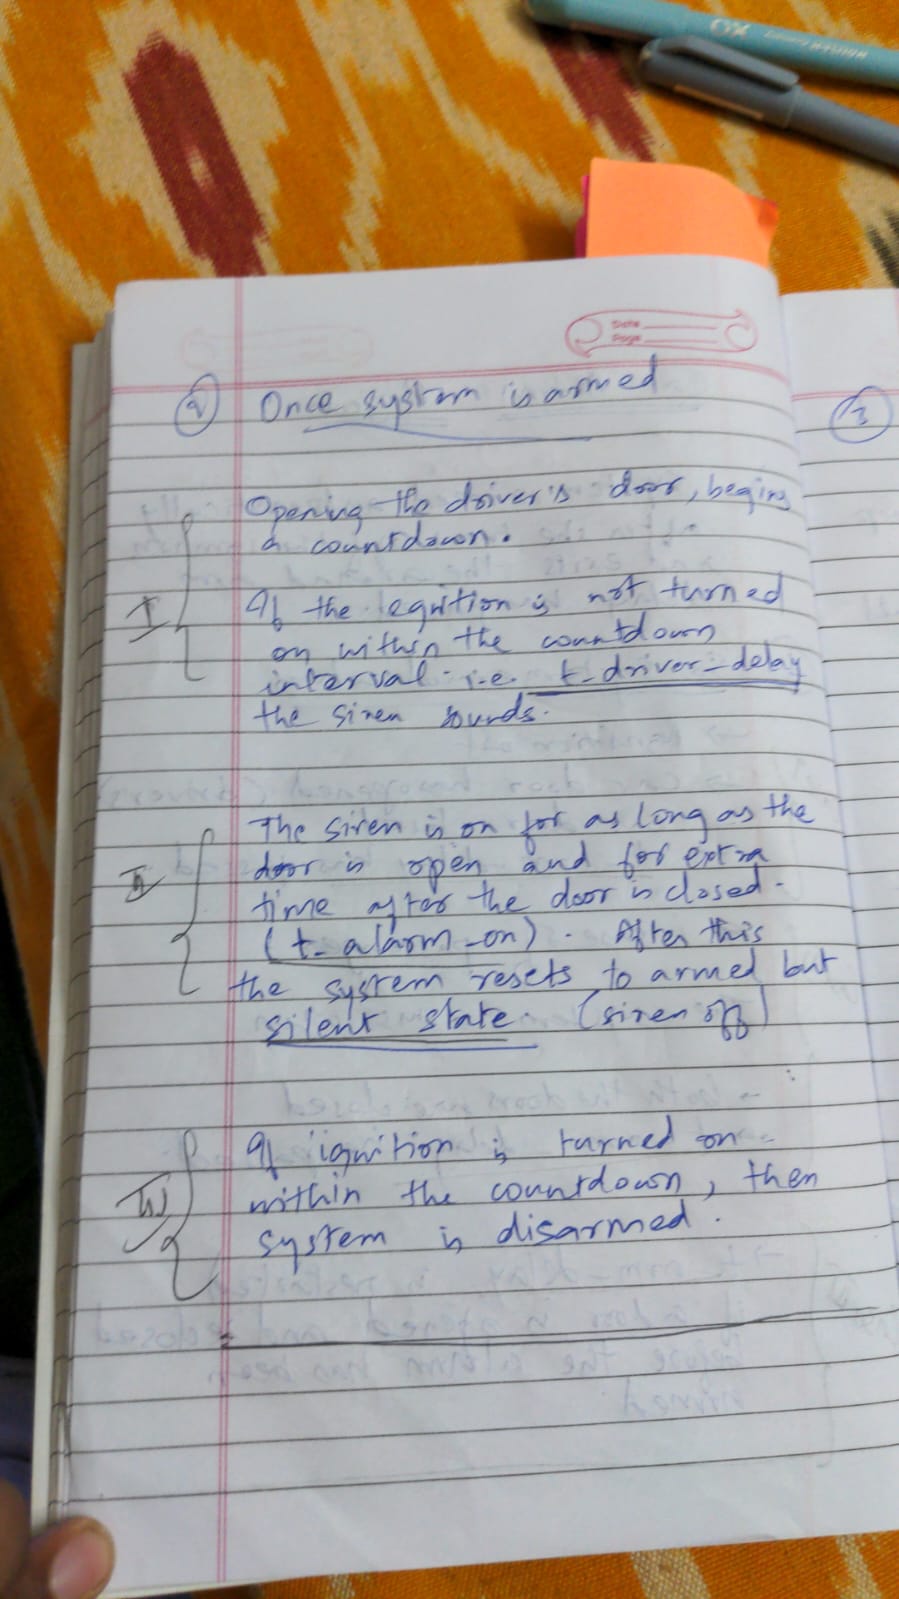 Date
Page
2 Once system is armed
3
Opening the driver's door, begins
a countdown.
I
If the Iegnition is not turned
on within the countdown
interval - i.e. t-driver-delay
the siren sounds.
The siren is on for as long as the
II
door is open and for extra
time after the door is closed -
(t-alarm-on). After this
the system resets to armed but
silent state. (siren off)
If ignition is turned on -
III
within the countdown, then
system is disarmed.